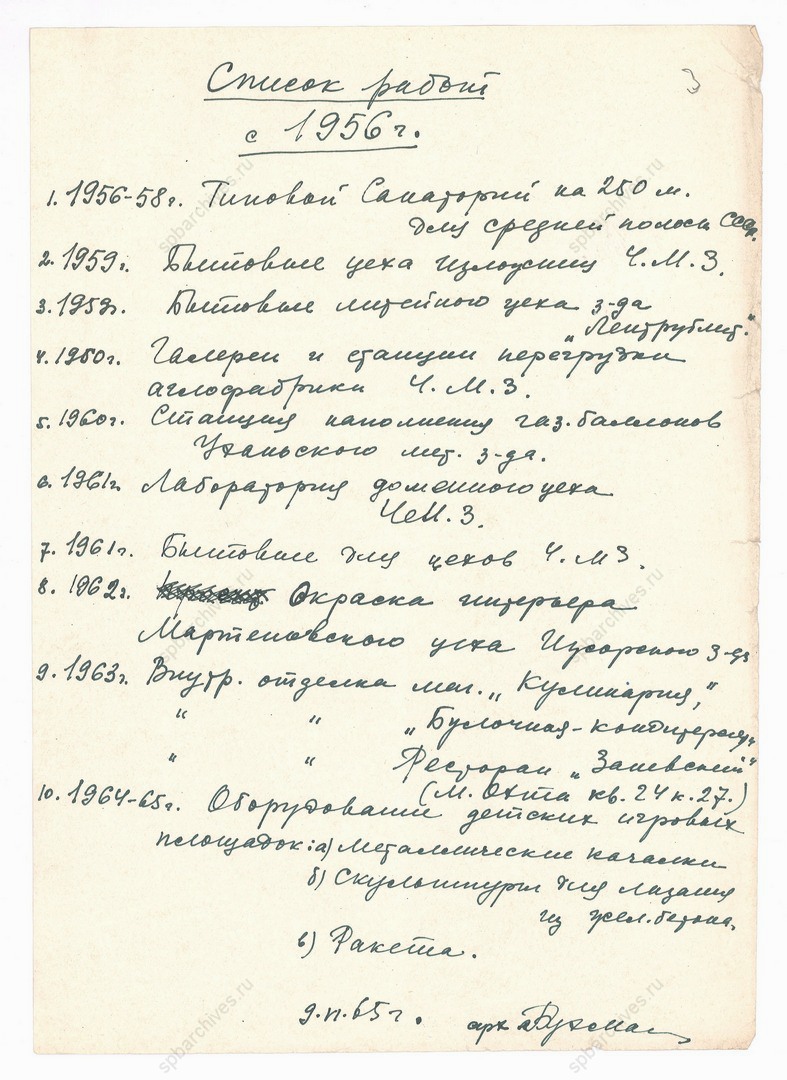 3
Список работ
с 1956 г.
1. 1956-58г. Типовой Санаторий на 250 м.
для средней полосы СССР.
2. 1959г. Бытовые цеха изложниц Ч.М.З.
3. 1959г. Бытовые литейного цеха з-да
"Лентрублит."
4. 1960г. Галереи и станции перегрузки
аглофабрики Ч.М.З.
5. 1960г. Станция наполнения газ. баллонов
Уханьского мет. з-да.
6. 1961г. Лаборатория доменного цеха
ЧеМ.З.
7. 1961г. Бытовые для цехов Ч.МЗ.
8. 1962г. Окраска интерьера
Мартеновского цеха Ижорского з-да
9. 1963г. Внутр. отделка маг. „Кулинария,"
" " „Булочная-кондитерская"
" " Ресторан „Заневский"
(М. Охта кв. 24 к. 27.)
10. 1964-65г. Оборудование детских игровых
площадок: а) металлические качалки
б) Скульптуры для лазания
из жел. бетона.
в) Ракета.
9.II.65г. арх
spbarchives.ru
spbarchives.ru
spbarchives.ru
spbarchives.ru
spbarchives.ru
spbarchives.ru